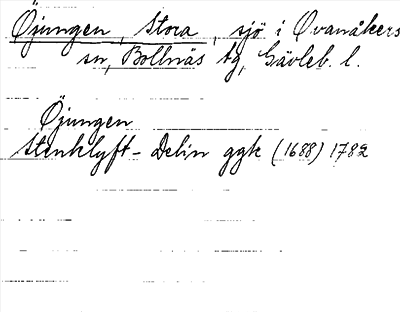 Öjungen, Stora, sjö i Ovanåkers
sn, Bollnäs tg, Gävleb. l.
Öjungen
Stenklyft - Delin ggk (1688) 1782